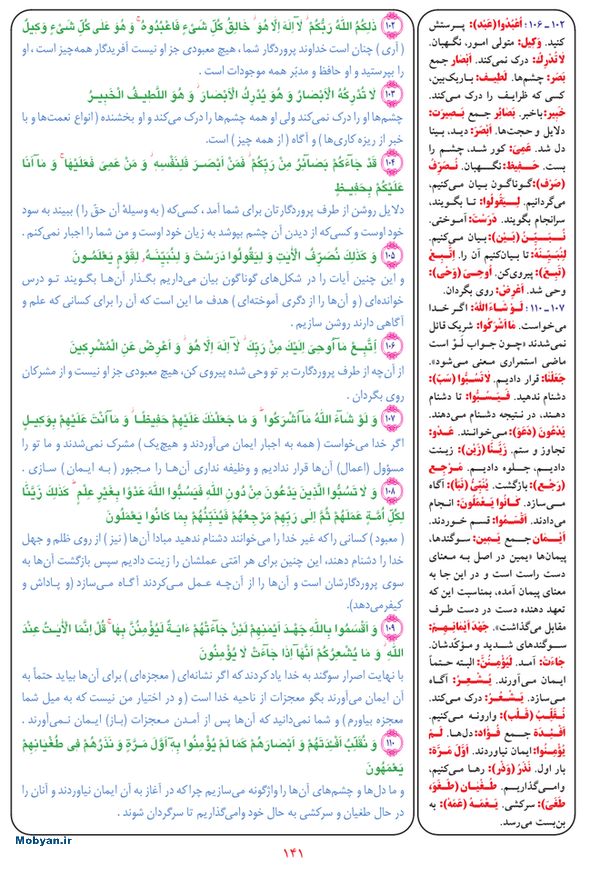 ۱۰۲ ذَلِكُمُ اللَّهُ رَبُّكُمْ لَآ إِلَهَ إِلَّا هُوَ خَالِقُ كُلِّ شَيْءٍ فَاعْبُدُوهُ وَ هُوَ عَلَى كُلِّ شَيْءٍ وَكِيلٌ
( آری ) چنان است خداوند پروردگار شما ، هیچ معبودی جز او نیست آفریدگار همه‌چیز است ، او
را بپرستید و او حافظ و مدبّر همه موجودات است .
۱۰۳ لَا تُدْرِكُهُ الْأَبْصَارُ وَ هُوَ يُدْرِكُ الْأَبْصَارَ وَ هُوَ اللَّطِيفُ الْخَبِيرُ
چشم‌ها او را درک نمی‌کند ولی او همه چشم‌ها را درک می‌کند و او بخشنده ( انواع نعمت‌ها و با
خبر از ریزه کاری‌ها ) و آگاه ( از همه چیز ) است .
۱۰۴ قَدْ جَآءَكُمْ بَصَآئِرُ مِنْ رَبِّكُمْ فَمَنْ أَبْصَرَ فَلِنَفْسِهِ وَ مَنْ عَمِيَ فَعَلَيْهَا وَ مَآ أَنَا
عَلَيْكُمْ بِحَفِيظٍ
دلایل روشن از طرف پروردگارتان برای شما آمد ، کسی‌که ( به وسیلهٔ آن حقّ را ) ببیند به سود
خود اوست و کسی‌که از دیدن آن چشم بپوشد به زیان خود اوست و من شما را اجبار نمی‌کنم .
۱۰۵ وَ كَذَلِكَ نُصَرِّفُ الْأَيَتِ وَ لِيَقُولُوا دَرَسْتَ وَ لِنُبَيِّنَهُ لِقَوْمٍ يَعْلَمُونَ
و این چنین آیات را در شکل‌های گوناگون بیان می‌داریم بگذار آن‌ها بگویند تو درس
خوانده‌ای ( و آن‌ها را از دگری آموخته‌ای ) هدف ما این است که آن را برای کسانی که علم و
آگاهی دارند روشن سازیم .
۱۰۶ اِتَّبِعْ مَآ أُوحِيَ إِلَيْكَ مِنْ رَبِّكَ لَآ إِلَهَ إِلَّا هُوَ وَ أَعْرِضْ عَنِ الْمُشْرِكِينَ
از آن‌چه از طرف پروردگارت بر تو وحی شده پیروی کن، هیچ معبودی جز او نیست و از مشرکان
روی بگردان .
۱۰۷ وَ لَوْ شَآءَ اللَّهُ مَآ أَشْرَكُوا وَ مَا جَعَلْنَكَ عَلَيْهِمْ حَفِيظًا وَ مَآ أَنْتَ عَلَيْهِمْ بِوَكِيلٍ
اگر خدا می‌خواست ( همه به اجبار ایمان می‌آوردند و هیچ‌یک ) مشرک نمی‌شدند و ما تو را
مسؤول (اعمال) آن‌ها قرار ندادیم و وظیفه نداری آن‌ها را مجبور ( به ایمان ) سازی .
۱۰۸ وَ لَا تَسُبُّوا الَّذِينَ يَدْعُونَ مِنْ دُونِ اللَّهِ فَيَسُبُّوا اللَّهَ عَدْوًا بِغَيْرِ عِلْمٍ كَذَلِكَ زَيَّنَّا
لِكُلِّ أُمَّةٍ عَمَلَهُمْ ثُمَّ إِلَى رَبِّهِمْ مَرْجِعُهُمْ فَيُنَبِّئُهُمْ بِمَا كَانُوا يَعْمَلُونَ
( معبود ) کسانی را که غیر خدا را می‌خوانند دشنام ندهید مبادا آن‌ها ( نیز ) از روی ظلم و جهل
خدا را دشنام دهند، این چنین برای هر امّتی عملشان را زینت دادیم سپس بازگشت آن‌ها به
سوی پروردگارشان است و آن‌ها را از آن‌چه عمل می‌کردند آگاه می‌سازد (و پاداش و
کیفرمی‌دهد).
۱۰۹ وَ أَقْسَمُوا بِاللَّهِ جَهْدَ أَيْمَنِهِمْ لَئِنْ جَآءَتْهُمْ ءَايَةٌ لَيُؤْمِنُنَّ بِهَا قُلْ إِنَّمَا الْأَيَتُ عِنْدَ
اللَّهِ وَ مَا يُشْعِرُكُمْ أَنَّهَآ إِذَا جَآءَتْ لَا يُؤْمِنُونَ
با نهایت اصرار سوگند به خدا یاد کردند که اگر نشانه‌ای ( معجزه‌ای ) برای آن‌ها بیاید حتماً به
آن ایمان می‌آورند بگو معجزات از ناحیه خدا است ( و در اختیار من نیست که به میل شما
معجزه بیاورم ) و شما نمی‌دانید که آن‌ها پس از آمدن معجزات (باز) ایمان نمی‌آورند .
۱۱۰ وَ نُقَلِّبُ أَفْئِدَتَهُمْ وَ أَبْصَارَهُمْ كَمَا لَمْ يُؤْمِنُوا بِهِ أَوَّلَ مَرَّةٍ وَ نَذَرُهُمْ فِي طُغْيَانِهِمْ
يَعْمَهُونَ
و ما دل‌ها و چشم‌های آن‌ها را واژگونه می‌سازیم چرا که در آغاز به آن ایمان نیاوردند و آنان را
در حال طغیان و سرکشی به حال خود وامی‌گذاریم تا سرگردان شوند .
۱۰۲ ـ ۱۰۶ : اُعْبُدُوا (عبد): پرستش
کنید. وَکِیل: متولی امور، نگهبان.
لَاتُدْرِكُ: درک نمی‌کند. اَبْصَار جمع
بَصَر: چشم‌ها. لَطِیف: باریک‌بین،
کسی که ظرایف را درک می‌کند.
خَبِیر: باخبر. بَصَائِر جمع بَصِیرَت:
دلایل و حجت‌ها. اَبْصَرَ: دید، بینا
دل شد. عَمِیَ: کور شد، چشم را
بست. حَفِیظ: نگهبان. نُصَرِّفُ
(صَرَفَ): گوناگون بیان می‌کنیم،
می‌گردانیم. لِیَقُولُوا: تا بگویند،
سرانجام بگویند. دَرَسْتَ: آموختی.
نُبَیِّنُ (بَیَنَ): بیان می‌کنیم.
لِنُبَیِّنَهُ: تا بیان‌کنیم آن را. اِتَّبِعْ
(تَبِعَ): پیروی‌کن. اُوحِیَ (وَحَی):
وحی شد. اَعْرِضْ: روی بگردان.
۱۰۷ ـ ۱۱۰ : لَوْ شَاءَ اللّٰهُ: اگر خدا
می‌خواست. مَا اَشْرَکُوا: شریک قائل
نمی‌شدند «چون جواب لَوْ است
ماضی استمراری معنی می‌شود».
جَعَلْنَا: قرار دادیم. لَا تَسُبُّوا (سَبَّ):
دشنام ندهید. فَیَسُبُّوا: تا دشنام
دهند، در نتیجه دشنام می‌دهند.
یَدْعُونَ (دَعَوَ): می‌خوانند. عَدْو:
تجاوز و ستم. زَیَّنَّا (زَیَنَ): زینت
دادیم، جلوه دادیم. مَرْجِع
(رَجَعَ): بازگشت. یُنَبِّئُ (نَبَأَ): آگاه
می‌سازد. کَانُوا یَعْمَلُونَ: انجام
می‌دادند. اَقْسَمُوا: قسم خوردند.
اَیْمَان جمع یَمِین: سوگندها،
پیمان‌ها «یمین در اصل به معنای
دست راست است و در این جا به
معنای پیمان آمده، بمناسبت این که
تعهد دهنده دست در دست طرف
مقابل می‌گذاشت». جَهْدَ اَیْمَانِهِمْ:
سوگندهای شدید و مؤکّدشان.
جَاءَتْ: آمد. لَیُؤْمِنُنَّ: البته حتماً
ایمان می‌آورند. یُشْعِرُ: آگاه
می‌سازد. یَشْعُرُ: درک می‌کند.
نُقَلِّبُ (قَلَبَ): وارونه می‌کنیم.
اَفْئِدَة جمع فُؤَاد: دل‌ها. لَمْ
یُؤْمِنُوا: ایمان نیاوردند. اَوَّلَ مَرَّة:
بار اول. نَذَرُ (وَذَرَ): رها می‌کنیم،
وامی‌گذاریم. طُغْیَان (طَغَوَ،
طَغَیَ): سرکشی. یَعْمَهُ (عَمَهَ): به
بن‌بست می‌رسد.
Mobyan.ir
۱۴۱